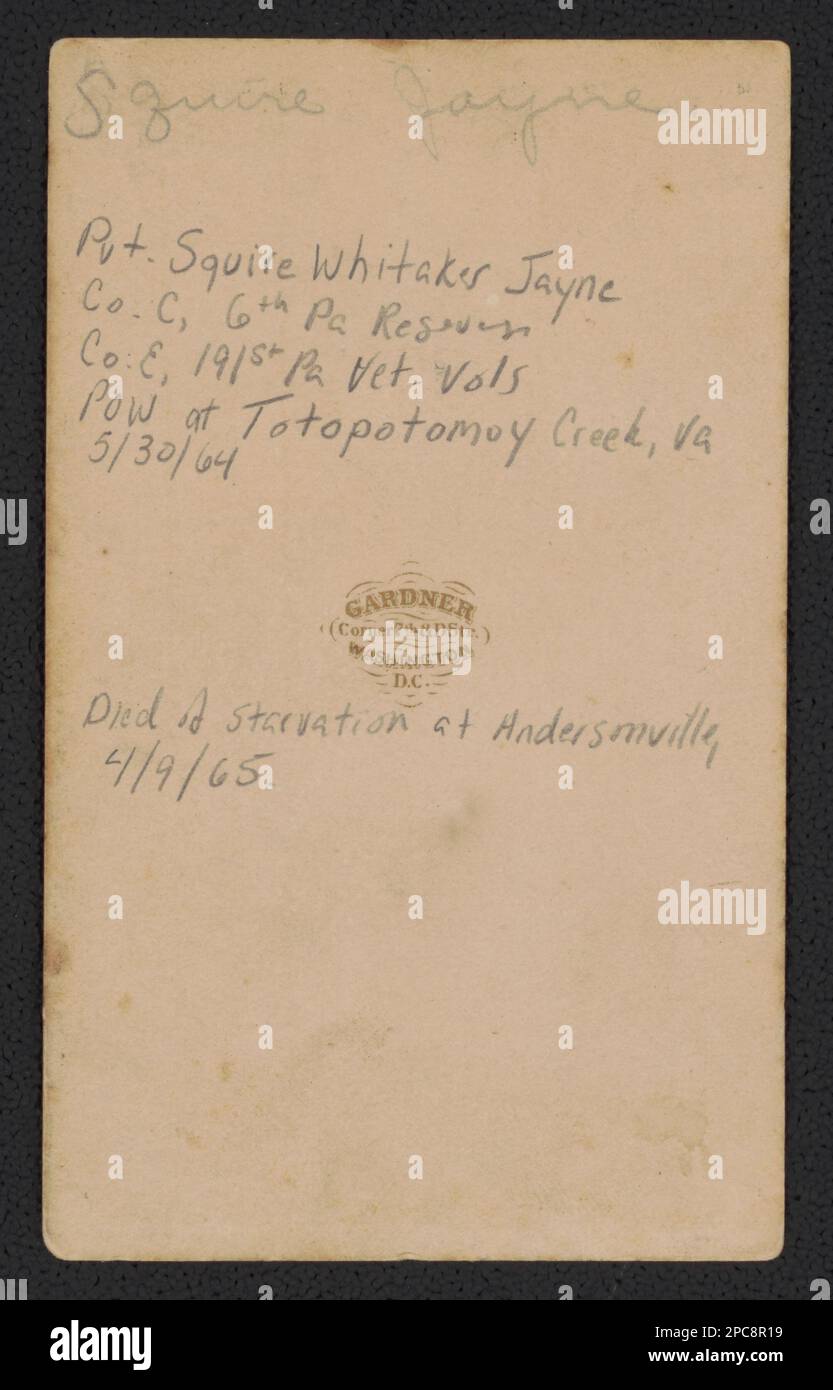 Squire Jayne
Pvt. Squire Whitaker Jayne
Co. C, 6th Pa Reserves
Co. E, 191st Pa Vet Vols
POW at Totopotomoy Creek, Va
5/30/64
GARDNER
(Corner 7th & D Sts.)
WASHINGTON
D.C.
Died of starvation at Andersonville,
4/9/65
alamy
Image ID: 2PC8R19
www.alamy.com